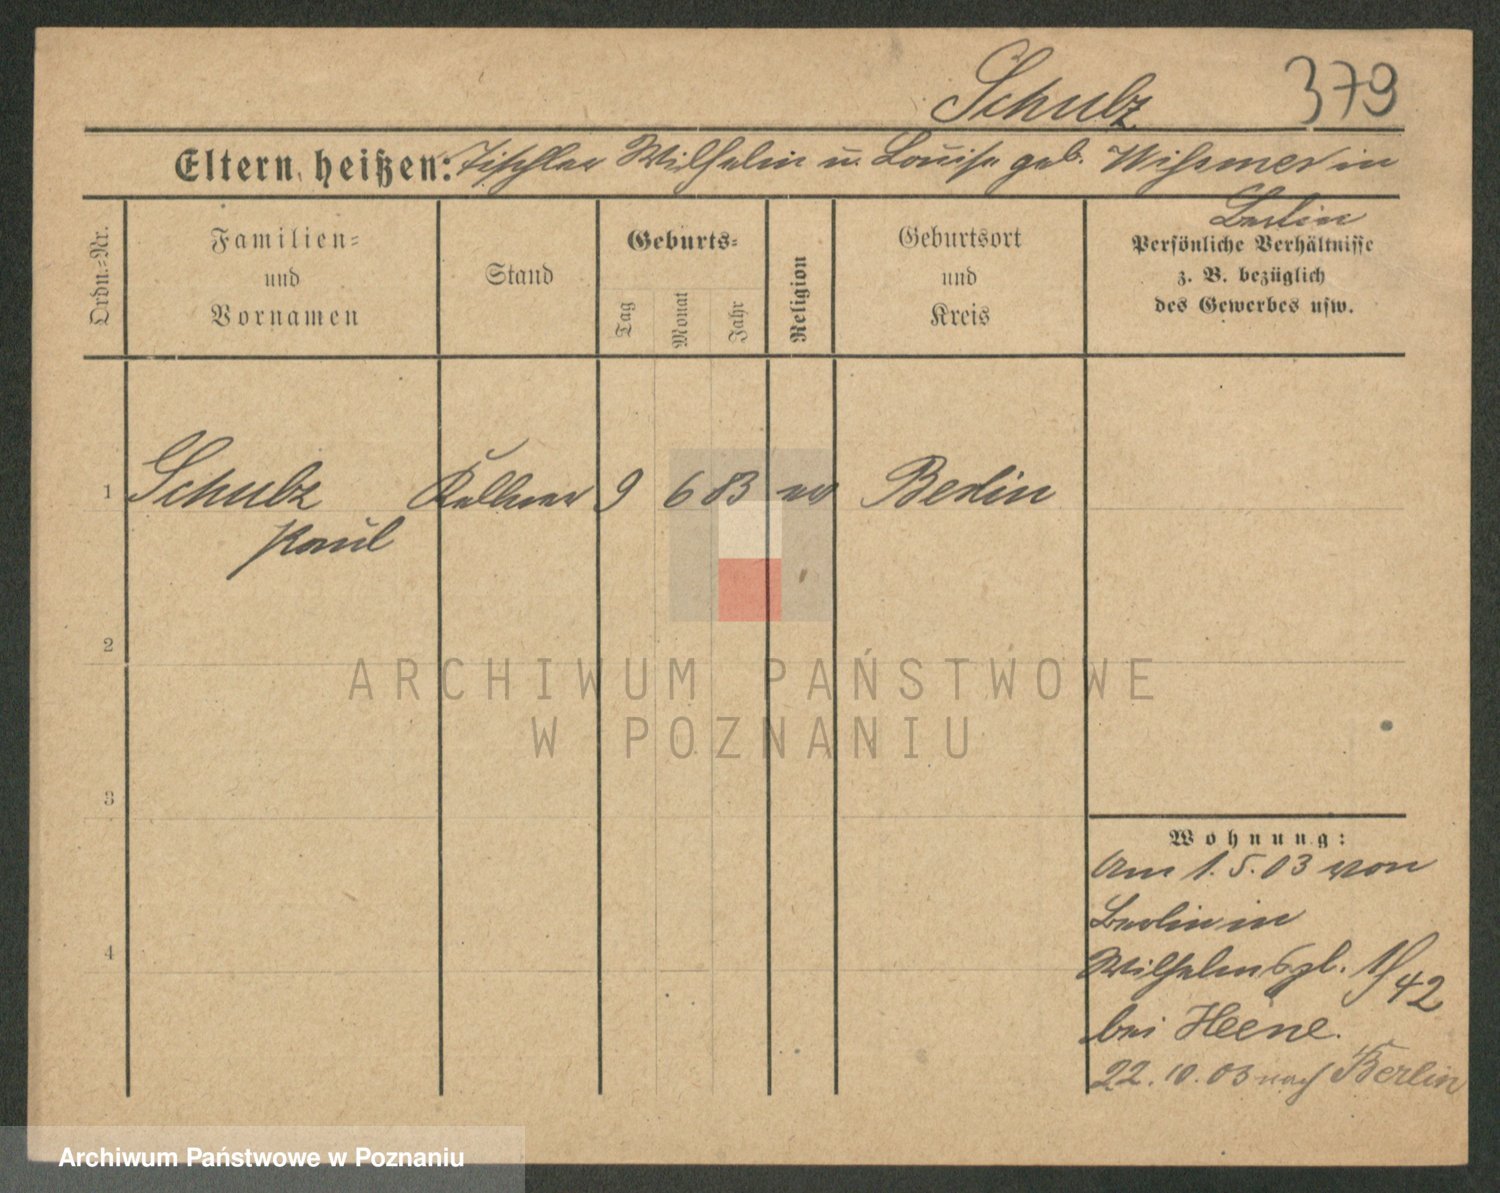 Schulz 379
Eltern heißen: Tischler Wilhelm u. Louise geb. Wissmer in
Berlin
Ordn.-Nr.
Familien-
und
Vornamen
Stand
Geburts-
Tag
Monat
Jahr
Religion
Geburtsort
und
Kreis
Persönliche Verhältnisse
z. B. bezüglich
des Gewerbes usw.
1 Schulz Kellner 9 6 83 ev Berlin
Paul
2
3
4
Wohnung:
Am 1.5.03 von
Berlin in
Wilhelmspl.
42
bei Heene.
22.10.03 nach Berlin
ARCHIWUM PAŃSTWOWE
W POZNANIU
Archiwum Państwowe w Poznaniu